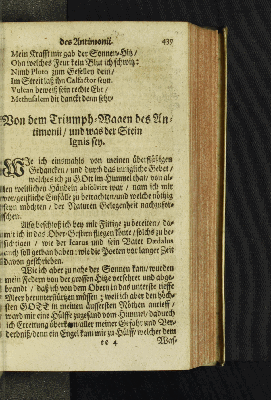 des Antimonii. 439
Mein Krafft mir gab der Sonnen-Hitz/
Ohn welches Feur kein Blut ich schwitz:
Nimb Pluto zum Gesellen dein/
Im Streit laß ihn Calfactor seyn.
Vulcan beweist sein rechte Ehr/
Methusalem dir danckt denn sehr.
Von dem Triumph-Wagen des An-
timonii/ und was der Stein
Ignis sey.
Als ich einsmahls von meinen überflüssigen
Gedancken/ und durch das innigliche Gebet/
welches ich zu GOtt im Himmel that/ von al-
len weltlichen Händeln absolvirt war/ nam ich mir
vor/ geistliche Einfälle zu betrachten/ und welche nöthig
seyn möchten/ der Naturen Gelegenheit nachzufor-
schen.
Also beschloß ich bey mir Fittige zu bereiten/ da-
mit ich in das Ober-Gestirn fliegen könte/ solchs zu be-
sichtigen/ wie der Icarus und sein Vater Dædalus
auch soll gethan haben: wie die Poeten vor langer Zeit
davon geschrieben.
Wie ich aber zu nahe der Sonnen kam/ wurden
mein Federn von der grossen Hitze versehrt und abge-
brandt/ daß ich von dem Oben in das unterste tieffe
Meer herunter stürtzen müssen; weil ich aber den höch-
sten GOTT in meinen äussersten Nöthen anrieff/
ward mir eine Hülffe zugesand vom Himmel/ dadurch
ich Errettung überkam/ aller meiner Gefahr und Ver-
derbnüß/ denn ein Engel kam mir zu Hülff/ welcher dem
ee 4 Was-